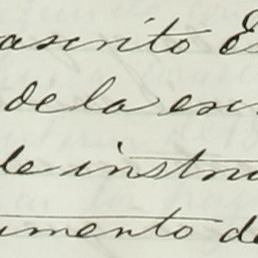 ascrito Es
de la esc
de instru
umento de